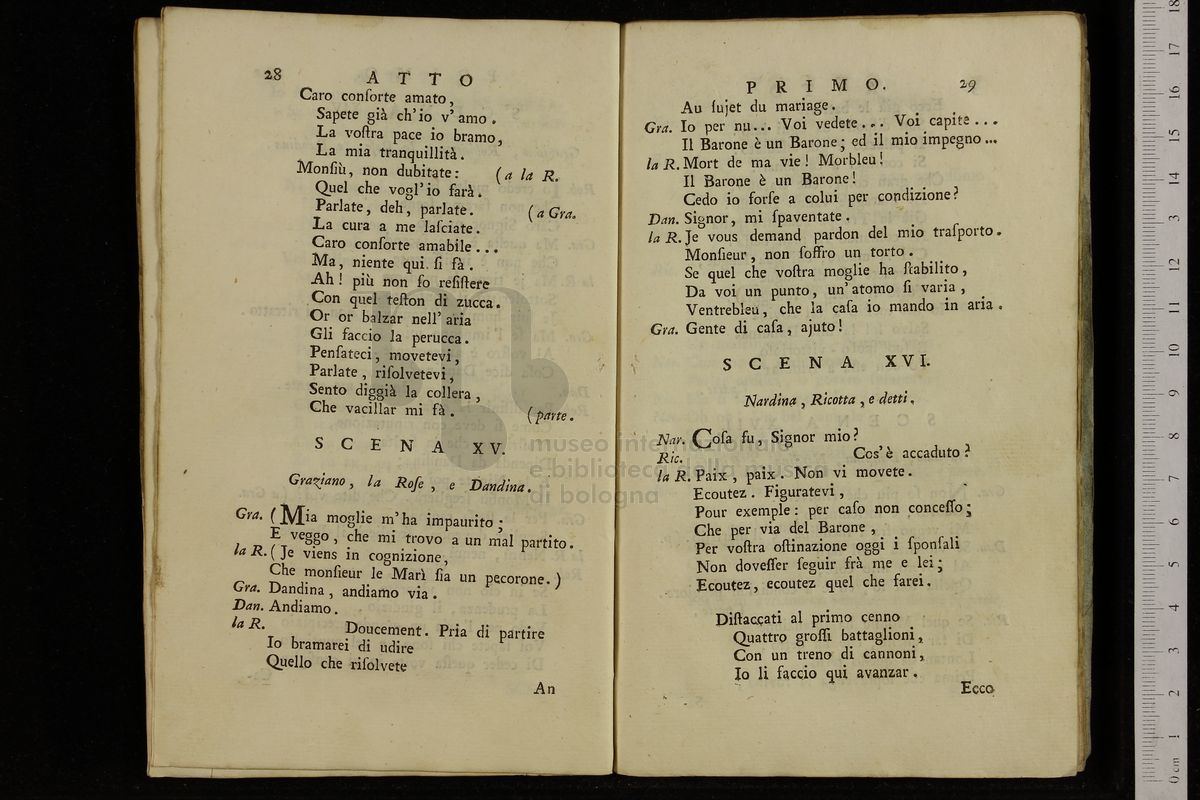 28 ATTO
Caro conſorte amato,
Sapete già ch'io v'amo.
La voſtra pace io bramo,
La mia tranquillità.
Monſiù, non dubitate: (a la R.
Quel che vogl'io farà.
Parlate, deh, parlate. (a Gra.
La cura a me laſciate.
Caro conſorte amabile...
Ma, niente qui ſi fà.
Ah! più non ſo reſiſtere
Con quel teſton di zucca.
Or or balzar nell'aria
Gli faccio la perucca.
Penſateci, movetevi,
Parlate, riſolvetevi,
Sento diggià la collera,
Che vacillar mi fà. (parte.
SCENA XV.
Graziano, la Roſe, e Dandina.
Gra. (Mia moglie m'ha impaurito;
E veggo, che mi trovo a un mal partito.
la R. (Je viens in cognizione,
Che monſieur le Marì ſia un pecorone.)
Gra. Dandina, andiamo via.
Dan. Andiamo.
la R. Doucement. Pria di partire
Io bramarei di udire
Quello che riſolvete
An
PRIMO. 29
Au ſujet du mariage.
Gra. Io per nu... Voi vedete... Voi capite...
Il Barone è un Barone; ed il mio impegno...
la R. Mort de ma vie! Morbleu!
Il Barone è un Barone!
Cedo io forſe a colui per condizione?
Dan. Signor, mi ſpaventate.
la R. Je vous demand pardon del mio traſporto.
Monſieur, non ſoffro un torto.
Se quel che voſtra moglie ha ſtabilito,
Da voi un punto, un'atomo ſi varia,
Ventrebleu, che la caſa io mando in aria.
Gra. Gente di caſa, ajuto!
SCENA XVI.
Nardina, Ricotta, e detti.
Nar. Coſa fu, Signor mio?
Ric. Cos'è accaduto?
la R. Paix, paix. Non vi movete.
Ecoutez. Figuratevi,
Pour exemple: per caſo non conceſſo;
Che per via del Barone,
Per voſtra oſtinazione oggi i ſponſali
Non doveſſer ſeguir frà me e lei;
Ecoutez, ecoutez quel che farei.
Diſtaccati al primo cenno
Quattro groſſi battaglioni,
Con un treno di cannoni,
Io li faccio qui avanzar.
Ecco
museo internazionale
e biblioteca della musica
di bologna
0 cm 1 2 3 4 5 6 7 8 9 10 11 12 13 14 15 16 17 18